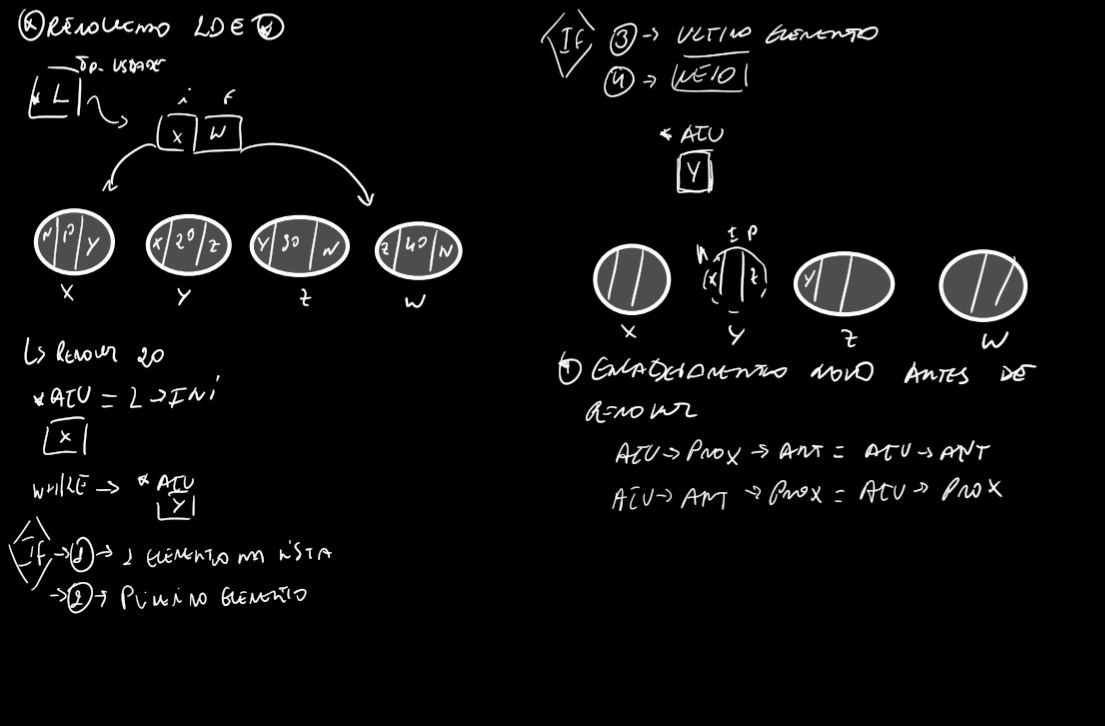 * REMOVENDO LDE *
* L
i f
X W
N 10 Y
X 20 Z
Y 30 N
Z 40 N
X Y Z W
↳ REMOVER 20
*ATU = L → INI
X
WHILE → *ATU
Y
IF → 1 → 1 ELEMENTO NA LISTA
→ 2 → PRIMEIRO ELEMENTO
IF 3 → ULTIMO ELEMENTO
4 → MEIO
* ATU
Y
I P
X Z
Y
X Y Z W
ENCADEAMENTO NOVO ANTES DE
REMOVER
ATU → PROX → ANT = ATU → ANT
ATU → ANT → PROX = ATU → PROX